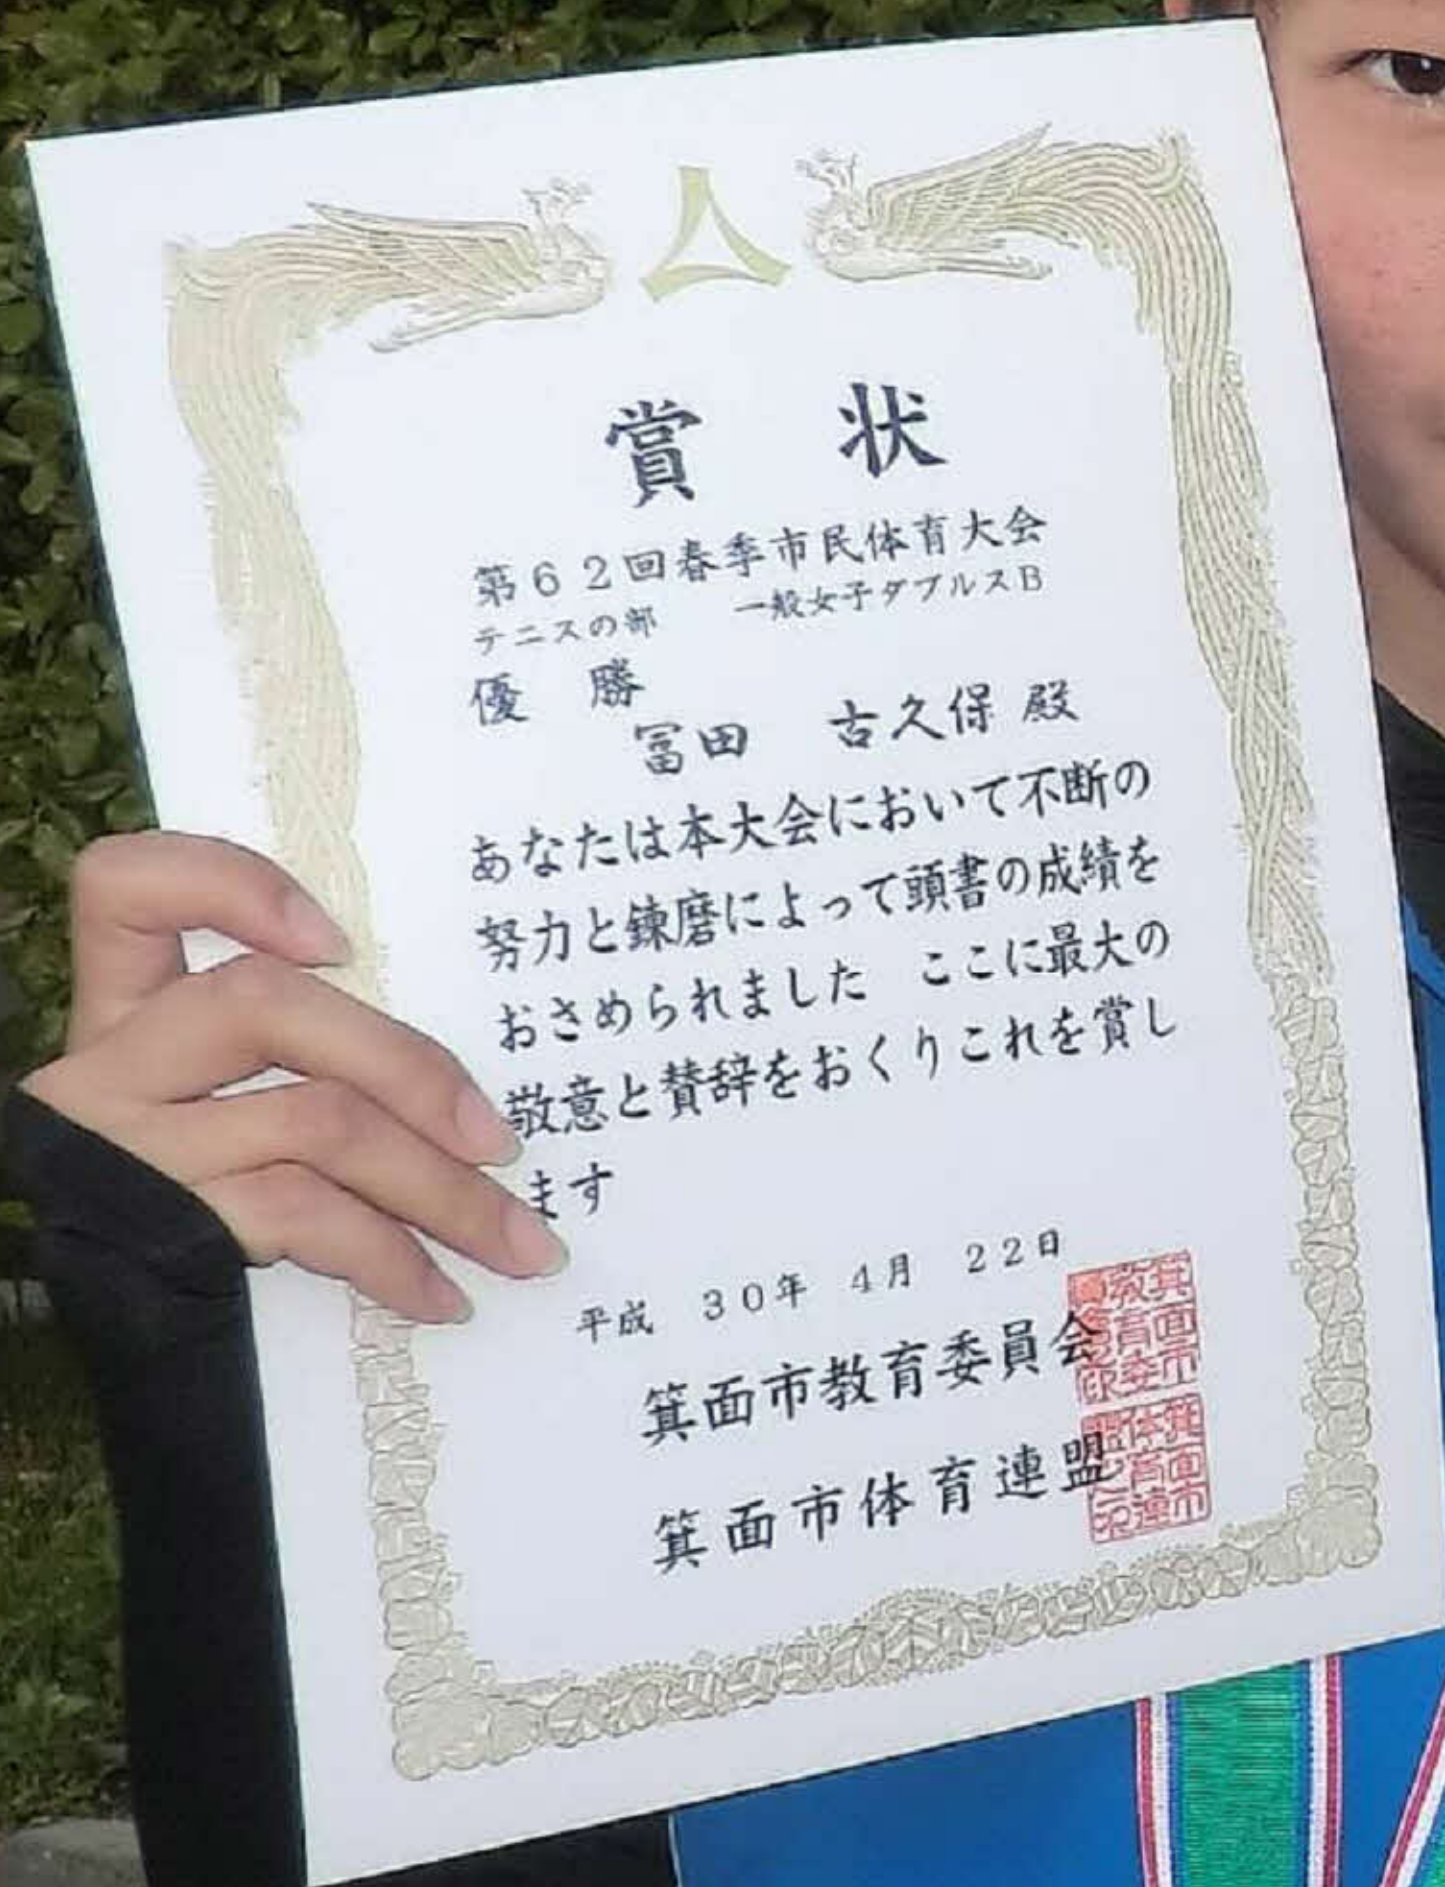 賞状
第62回春季市民体育大会
テニスの部 一般女子ダブルスB
優勝
冨田 古久保 殿
あなたは本大会において不断の
努力と錬磨によって頭書の成績を
おさめられました ここに最大の
敬意と賛辞をおくりこれを賞し
ます
平成 30年 4月 22日
箕面市教育委員会
箕面市体育連盟